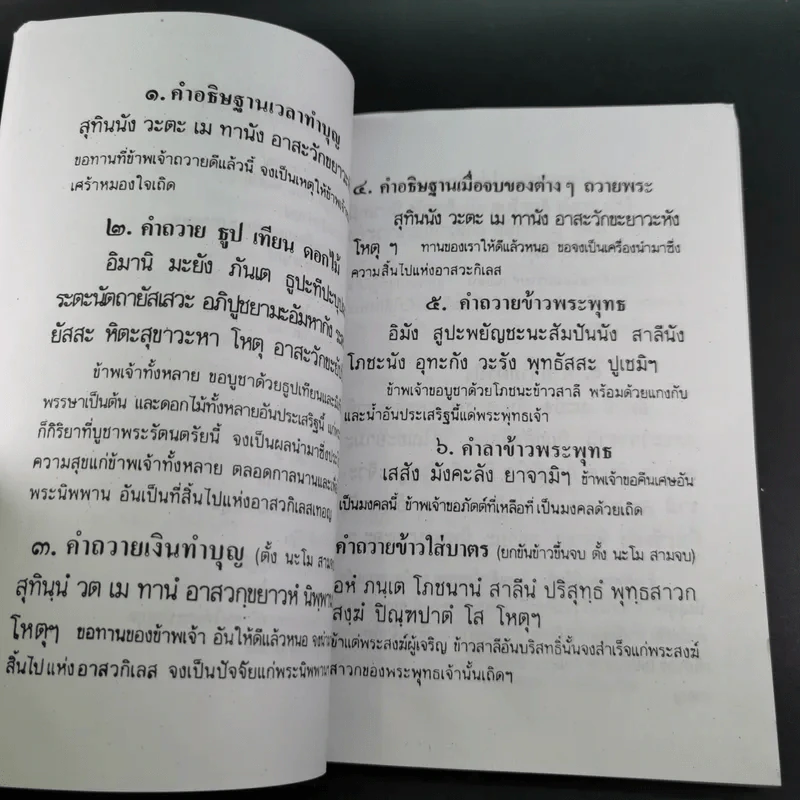 ๑. คำอธิษฐานเวลาทำบุญ
สุทินนัง วะตะ เม ทานัง อาสะวักขะยาวะหั
ขอทานที่ข้าพเจ้าถวายดีแล้วนี้ จงเป็นเหตุให้ข้าพเจ้า
เศร้าหมองใจเถิด
๒. คำถวาย ธูป เทียน ดอกไม้
อิมานิ มะยัง ภันเต ธูปะทีปะบุป
ระตะนัตถายัสเสวะ อภิปูชยามะอัมหากัง
ยัสสะ หิตะสุขาวะหา โหตุ อาสะวักขะยั
ข้าพเจ้าทั้งหลาย ขอบูชาด้วยธูปเทียนและ
พรรษาเป็นต้น และดอกไม้ทั้งหลายอันประเสริฐนี้
ก็กิริยาที่บูชาพระรัตนตรัยนี้ จงเป็นผลนำมาซึ่ง
ความสุขแก่ข้าพเจ้าทั้งหลาย ตลอดกาลนาน
พระนิพพาน อันเป็นที่สิ้นไปแห่งอาสวกิเลสเทอญ
๓. คำถวายเงินทำบุญ (ตั้ง นะโม สาม
สุทินฺนํ วต เม ทานํ อาสวกฺขยาวหํ นิพฺพาน
โหตุฯ ขอทานของข้าพเจ้า อันให้ดีแล้วหนอ
สิ้นไปแห่งอาสวกิเลส จงเป็นปัจจัยแก่พระนิพพาน
๔. คำอธิษฐานเมื่อจบของต่าง ๆ ถวายพระ
สุทินนัง วะตะ เม ทานัง อาสะวักขะยาวะหัง
โหตุ ฯ ทานของเราให้ดีแล้วหนอ ขอจงเป็นเครื่องนำมาซึ่ง
ความสิ้นไปแห่งอาสวะกิเลส
๕. คำถวายข้าวพระพุทธ
อิมัง สูปะพยัญชะนะสัมปันนัง สาลีนัง
โภชะนัง อุทะกัง วะรัง พุทธัสสะ ปูเชมิฯ
ข้าพเจ้าขอบูชาด้วยโภชนะข้าวสาลี พร้อมด้วยแกงกับ
และน้ำอันประเสริฐนี้แด่พระพุทธเจ้า
๖. คำลาข้าวพระพุทธ
เสสัง มังคะลัง ยาจามิฯ ข้าพเจ้าขอคืนเศษอัน
เป็นมงคลนี้ ข้าพเจ้าขอภัตต์ที่เหลือที่ เป็นมงคลด้วยเถิด
คำถวายข้าวใส่บาตร (ยกขันข้าวขึ้นจบ ตั้ง นะโม สามจบ)
อหํ ภนฺเต โภชนานํ สาลีนํ ปริสุทฺธํ พุทฺธสาวก
สงฺฆํ ปิณฺฑปาตํ โส โหตุฯ
ข้าแด่พระสงฆ์ผู้เจริญ ข้าวสาลีอันบริสุทธิ์นั้นจงสำเร็จแก่พระสงฆ์
สาวกของพระพุทธเจ้านั้นเถิดฯ